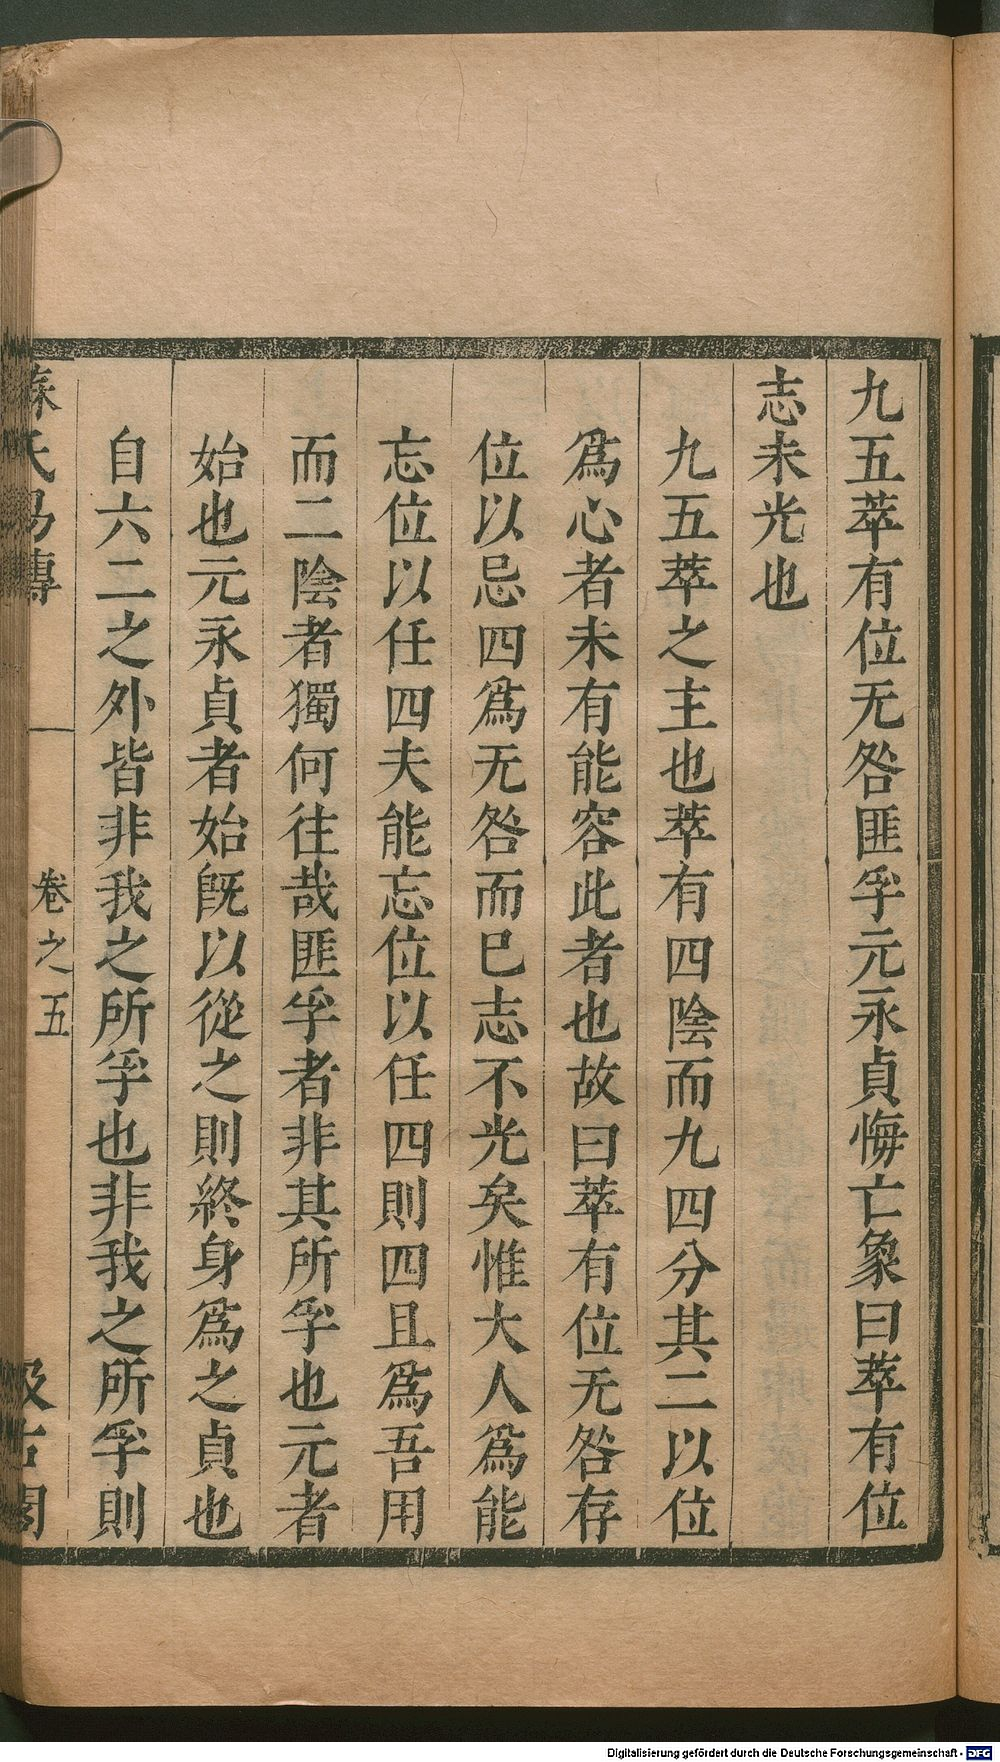 九五萃有位无咎匪孚元永貞悔亡象曰萃有位
志未光也
九五萃之主也萃有四陰而九四分其二以位
爲心者未有能容此者也故曰萃有位无咎存
位以忌四爲无咎而已志不光矣惟大人爲能
忘位以任四夫能忘位以任四則四且爲吾用
而二陰者獨何往哉匪孚者非其所孚也元者
始也元永貞者始旣以從之則終身爲之貞也
自六二之外皆非我之所孚也非我之所孚則
蘇氏易傳
卷之五
汲古閣
Digitalisierung gefördert durch die Deutsche Forschungsgemeinschaft - DFG